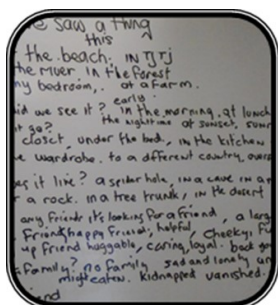 e saw a thing
this
the beach. IN TJTJ
the river in the forest
ny bedroom,. at a farm.
early
id we see it? in the morning, at lunch
it go? the nighttime at sunset, sunr
closet, under the bed, in the kitchen
e wardrobe. to a different country, overs
es it live? a spider hole, in a cave in a
r a rock. in a tree trunk, in the desert
any friends its looking for a friend, a larg
friend, happy friend, helpful, cheeky, fu
up friend huggable, caring, loyal. back
family? no family sad and lonely
might eaten. kidnapped vanished.